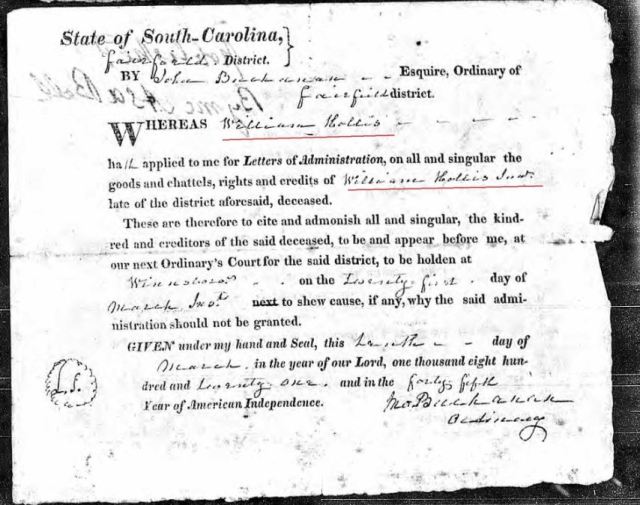 State of South-Carolina,
Fairfield District.
BY John Buchanan - - Esquire, Ordinary of
Fairfield district.
WHEREAS William Hollis - - -
hath applied to me for Letters of Administration, on all and singular the
goods and chattels, rights and credits of William Hollis Junr.
late of the district aforesaid, deceased.
These are therefore to cite and admonish all and singular, the kind-
red and creditors of the said deceased, to be and appear before me, at
our next Ordinary's Court for the said district, to be holden at
Winnsboro - - on the Twenty first day of
March Inst. next to shew cause, if any, why the said admi-
nistration should not be granted.
GIVEN under my hand and Seal, this tenth - - day of
March in the year of our Lord, one thousand eight hun-
dred and twenty one. and in the forty fifth
Year of American Independence.
L.S.
Jno. Buchanan
Ordinary